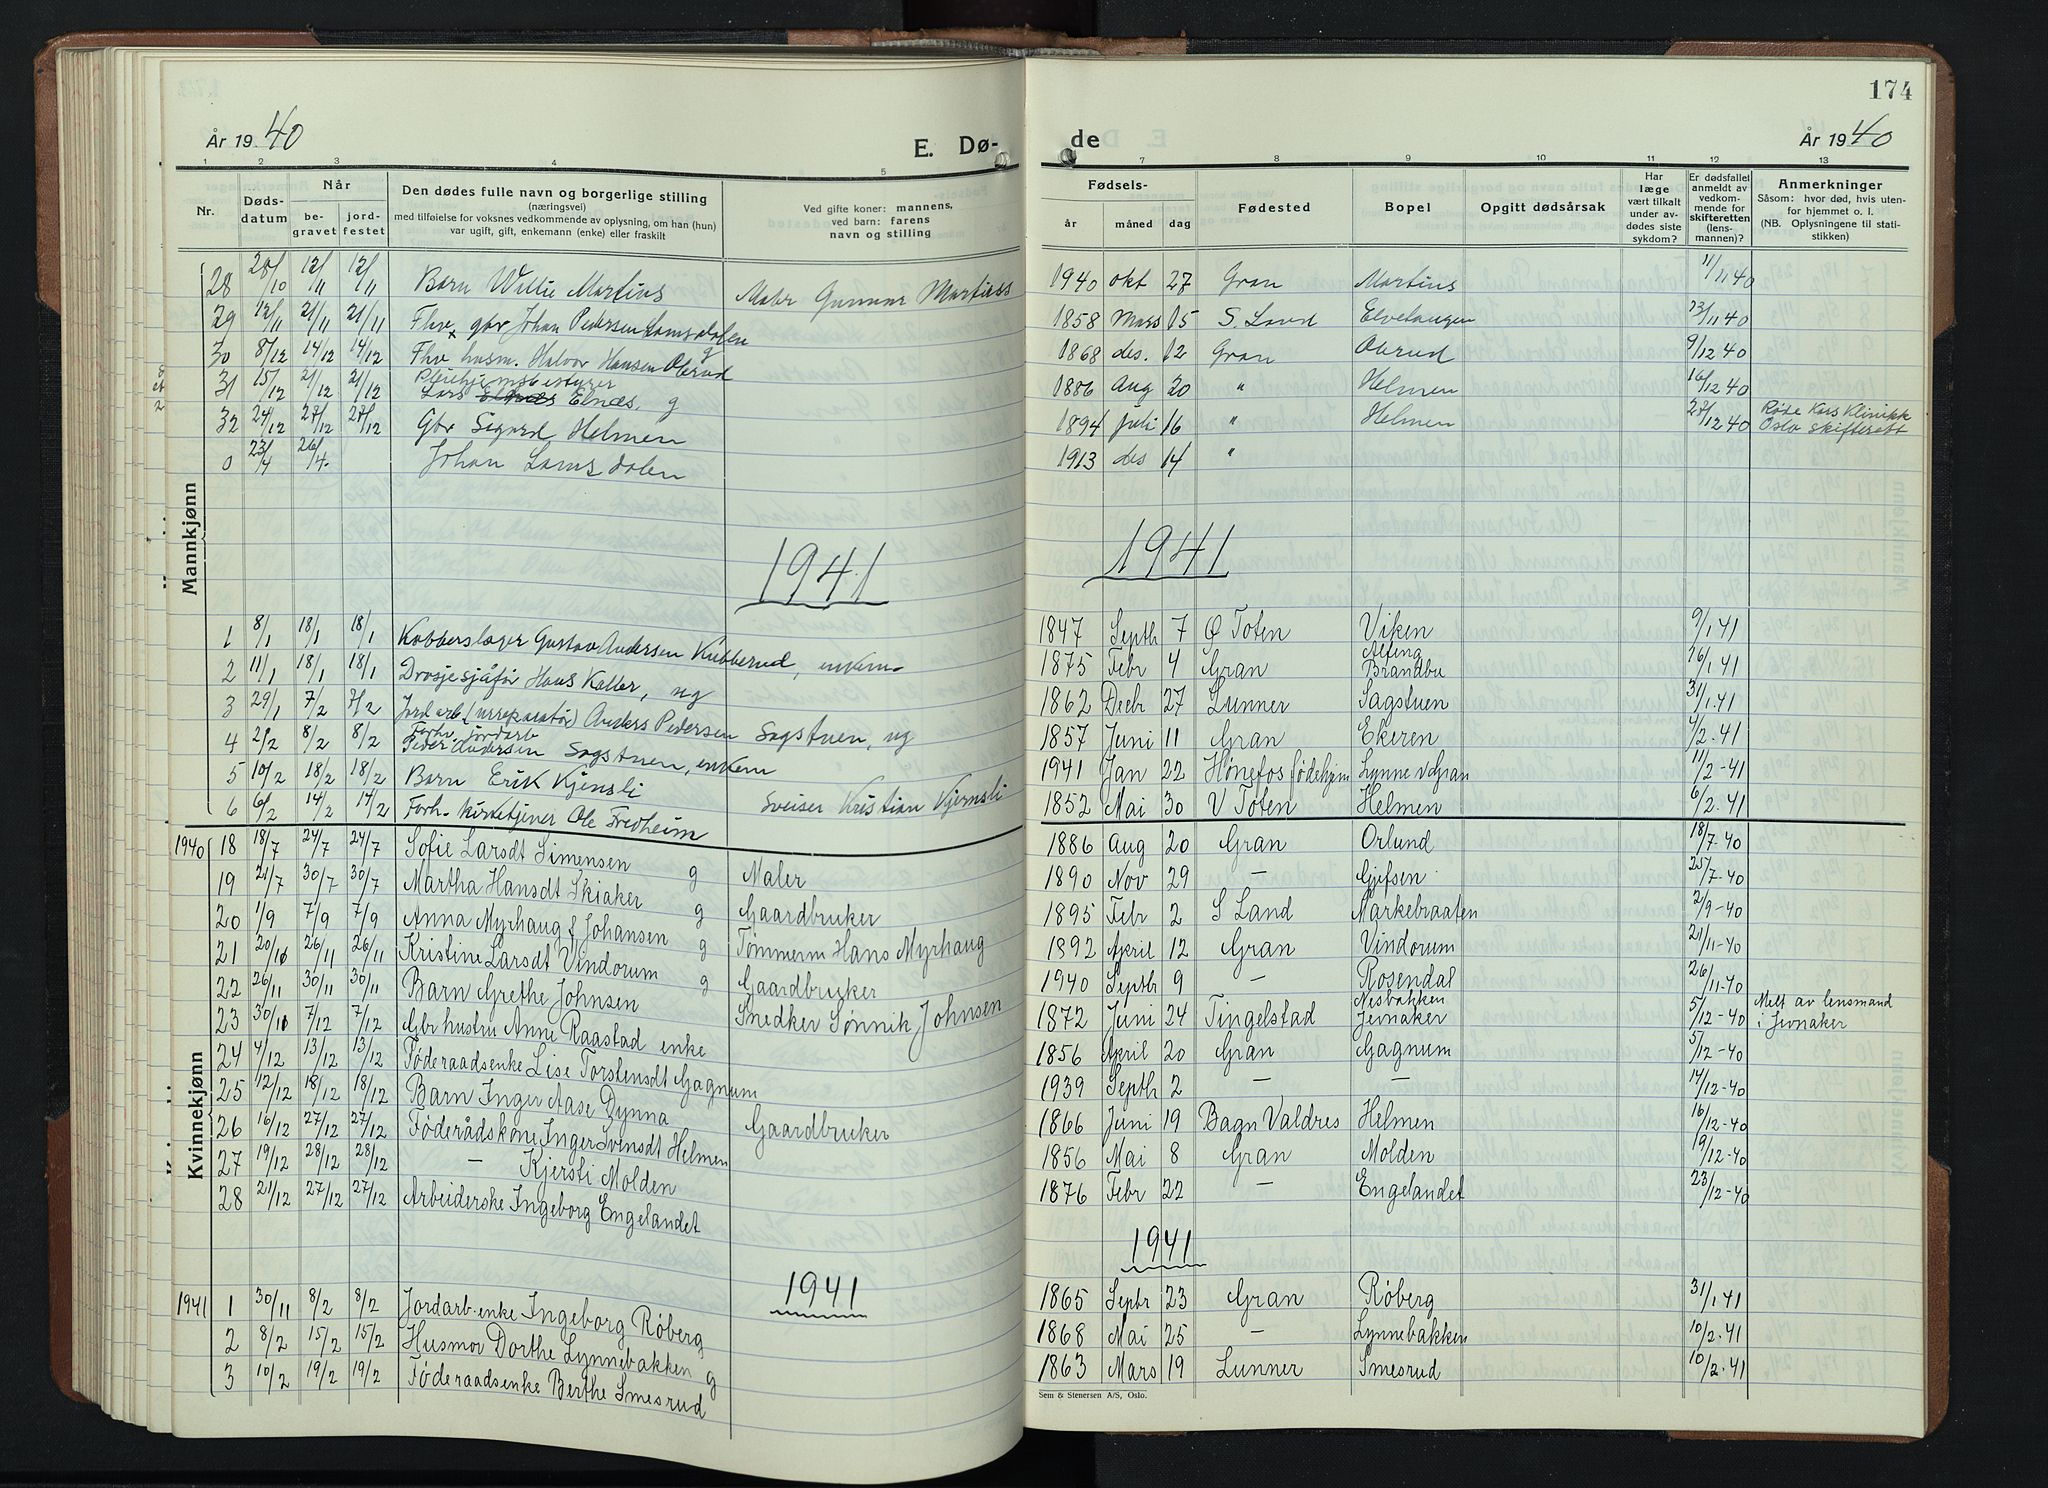 174
År 1940
E. Dø-
de
År 1940
1 2 3 4 5
7 8 9 10 11 12 13
Nr.
Døds-
datum
Når
be-
gravet
jord-
festet
Den dødes fulle navn og borgerlige stilling
(næringsvei)
med tilføielse for voksnes vedkommende av oplysning, om han (hun)
var ugift, gift, enkemann (enke) eller fraskilt
Ved gifte koner: mannens,
ved barn: farens
navn og stilling
Fødsels-
år måned dag
Fødested
Bopel
Opgitt dødsårsak
Har
læge
vært tilkalt
under av-
dødes siste
sykdom?
Er dødsfallet
anmeldt av
vedkom-
mende for
skifteretten
(lens-
mannen)?
Anmerkninger
Såsom: hvor død, hvis uten-
for hjemmet o. l.
(NB. Oplysningene til stati-
stikken)
Mannkjønn
28 28/10 12/11 12/11 Barn Willie Martius Maler Gunnar Martiuss 1940 okt 27 Gran Martius 11/11 40
29 12/11 21/11 21/11 Fhv gbr Johan Pedersen Lamsdalen 1858 Mars 15 S. Land Elvetangen 23/11 40
30 8/12 14/12 14/12 Fhv husm. Halvor Hansen Olerud g 1868 des. 12 Gran Olerud 9/12 40
31 15/12 21/12 21/12 Pleiehjemsbestyrer
Lars Elnæs, g 1886 Aug 20 " Helmen 16/12 40
32 24/12 27/12 27/12 Gbr Sigurd Helmen 1894 Juli 16 " Helmen 28/12 40 Røde Kors Klinikk
Oslo skifterett
0 23/4 26/4 Johan Lamsdalen 1913 des 14 "
1941
1941
1 8/1 18/1 18/1 Kobberslager Gustav Andersen Kubberud, enkem. 1847 Septb 7 Ø Toten Viken 9/1.41
2 11/1 18/1 18/1 Drosjesjåfør Hans Koller, ug 1875 Febr 4 Gran Alfing
Brandbu 16/1.41
3 29/1 7/2 7/2 Jordarb (urreparatør) Anders Pedersen Sagstuen, ug 1862 Decbr 27 Lunner Sagstuen 31/1.41
4 2/2 8/2 8/2 Forhv. jordarb
Peder Andersen Sagstuen, enkem 1857 Juni 11 Gran Ekeren 4/2.41
5 10/2 18/2 18/2 Barn Erik Kjernsli Sveiser Kristian Kjernsli 1941 Jan 22 Hønefos fødehjem Lynne v Gran 11/2-41
6 6/2 14/2 14/2 Forh. kirketjener Ole Fredheim 1852 Mai 30 V Toten Helmen 6/2.41
Kvinnekjønn
1940 18 18/7 24/7 24/7 Sofie Larsdt Simensen g Maler 1886 Aug 20 Gran Orlund 18/7-40
19 21/7 30/7 30/7 Martha Hansdt Skiaker g Gaardbruker 1890 Nov 29 — Gjefsen 25/7-40
20 1/9 7/9 7/9 Anna Myrhaug f Johansen g Tømmerm Hans Myrhaug 1895 Febr 2 S Land Markebraaten 2/9-40
21 20/11 26/11 26/11 Kristine Larsdt Vindorum g Gaardbruker 1892 April 12 Gran Vindorum 21/11-40
22 26/11 30/11 30/11 Barn Grethe Johnsen Snedker Sønnik Johnsen 1940 Septb 9 — Rosendal 26/11-40
23 30/11 7/12 7/12 Gbr hustru Anne Raastad enke 1872 Juni 24 Tingelstad Nesbakken
Jevnaker 5/12-40 Melt av lensmand
i Jevnaker
24 4/12 13/12 13/12 Føderaadsenke Lise Torstensdt Gagnum 1856 April 20 Gran Gagnum 5/12-40
25 12/12 18/12 18/12 Barn Inger Aase Dynna Gaardbruker 1939 Septb 2 — — 14/12-40
26 16/12 27/12 27/12 Føderådskone Inger Svensdt Helmen 1866 Juni 19 Bagn Valdres Helmen 16/12-40
27 19/12 28/12 28/12 — Kjersti Molden 1856 Mai 8 Gran Molden 19/12-40
28 21/12 27/12 27/12 Arbeiderske Ingeborg Engelandet 1876 Febr 22 — Engelandet 23/12-40
1941
1941
1941 1 30/11 8/2 8/2 Jordarb.enke Ingeborg Røberg 1865 Septbr 23 Gran Røberg 31/1.41
2 8/2 15/2 15/2 Husmor Dorthe Lynnebakken g 1868 Mai 25 — Lynnebakken 10/2.41
3 10/2 19/2 19/2 Føderaadsenke Berthe Smesrud 1863 Mars 19 Lunner Smesrud 10/2.41
Sem & Stenersen A/S, Oslo.